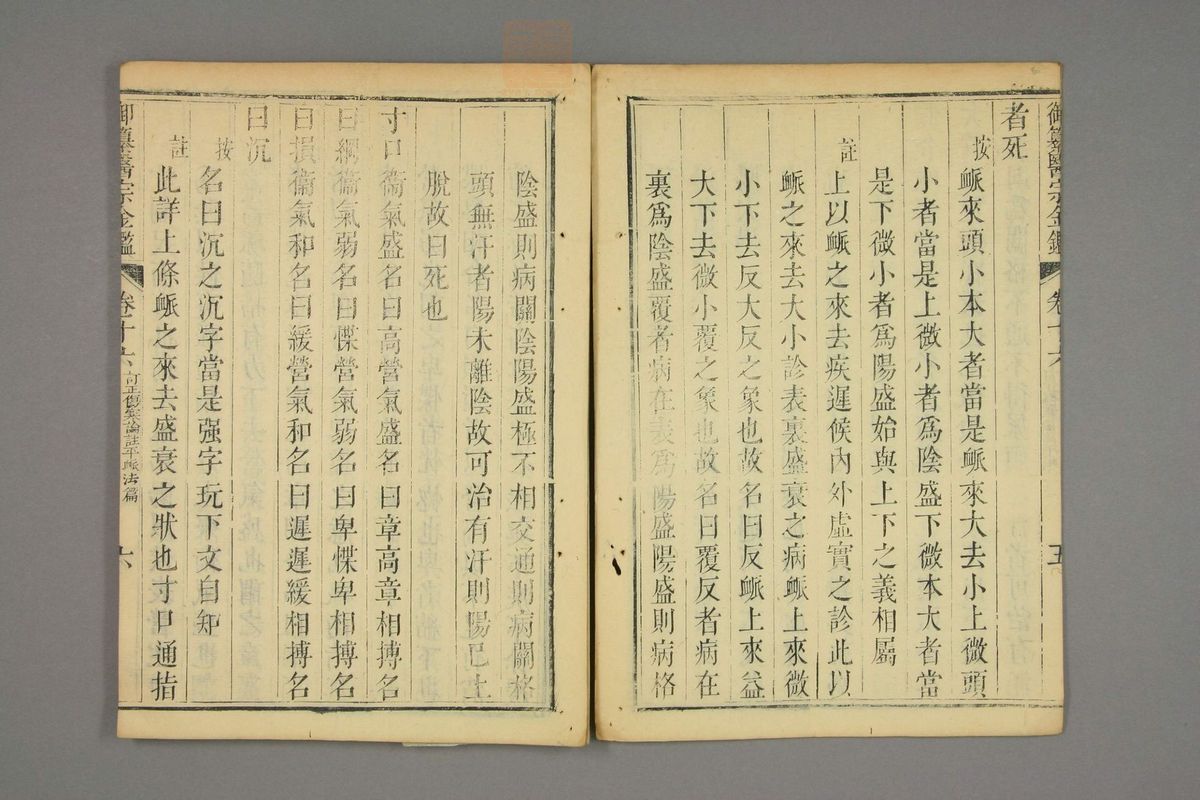 御纂醫宗金鑑 卷十六 五
者死
按 脈來頭小本大者當是脈來大去小上微頭
小者當是上微小者為陰盛下微本大者當
是下微小者為陽盛始與上下之義相屬
註 上以脈之來去疾遲候內外虛實之診此以
脈之來去大小診表裏盛衰之病脈上來微
小下去反大反之象也故名曰反脈上來益
大下去微小覆之象也故名曰覆反者病在
裏爲陰盛覆者病在表爲陽盛陽盛則病格
陰盛則病關陰陽盛極不相交通則病關格
頭無汗者陽未離陰故可治有汗則陽已上
脫故曰死也
寸口衞氣盛名曰高營氣盛名曰章高章相搏名
曰綱衞氣弱名曰惵營氣弱名曰卑惵卑相搏名
曰損衞氣和名曰緩營氣和名曰遲遲緩相搏名
曰沉
按 名曰沉之沉字當是强字玩下文自知
註 此詳上條脈之來去盛衰之狀也寸口通指
御纂醫宗金鑑 卷十六 訂正傷寒論註平脈法篇 六